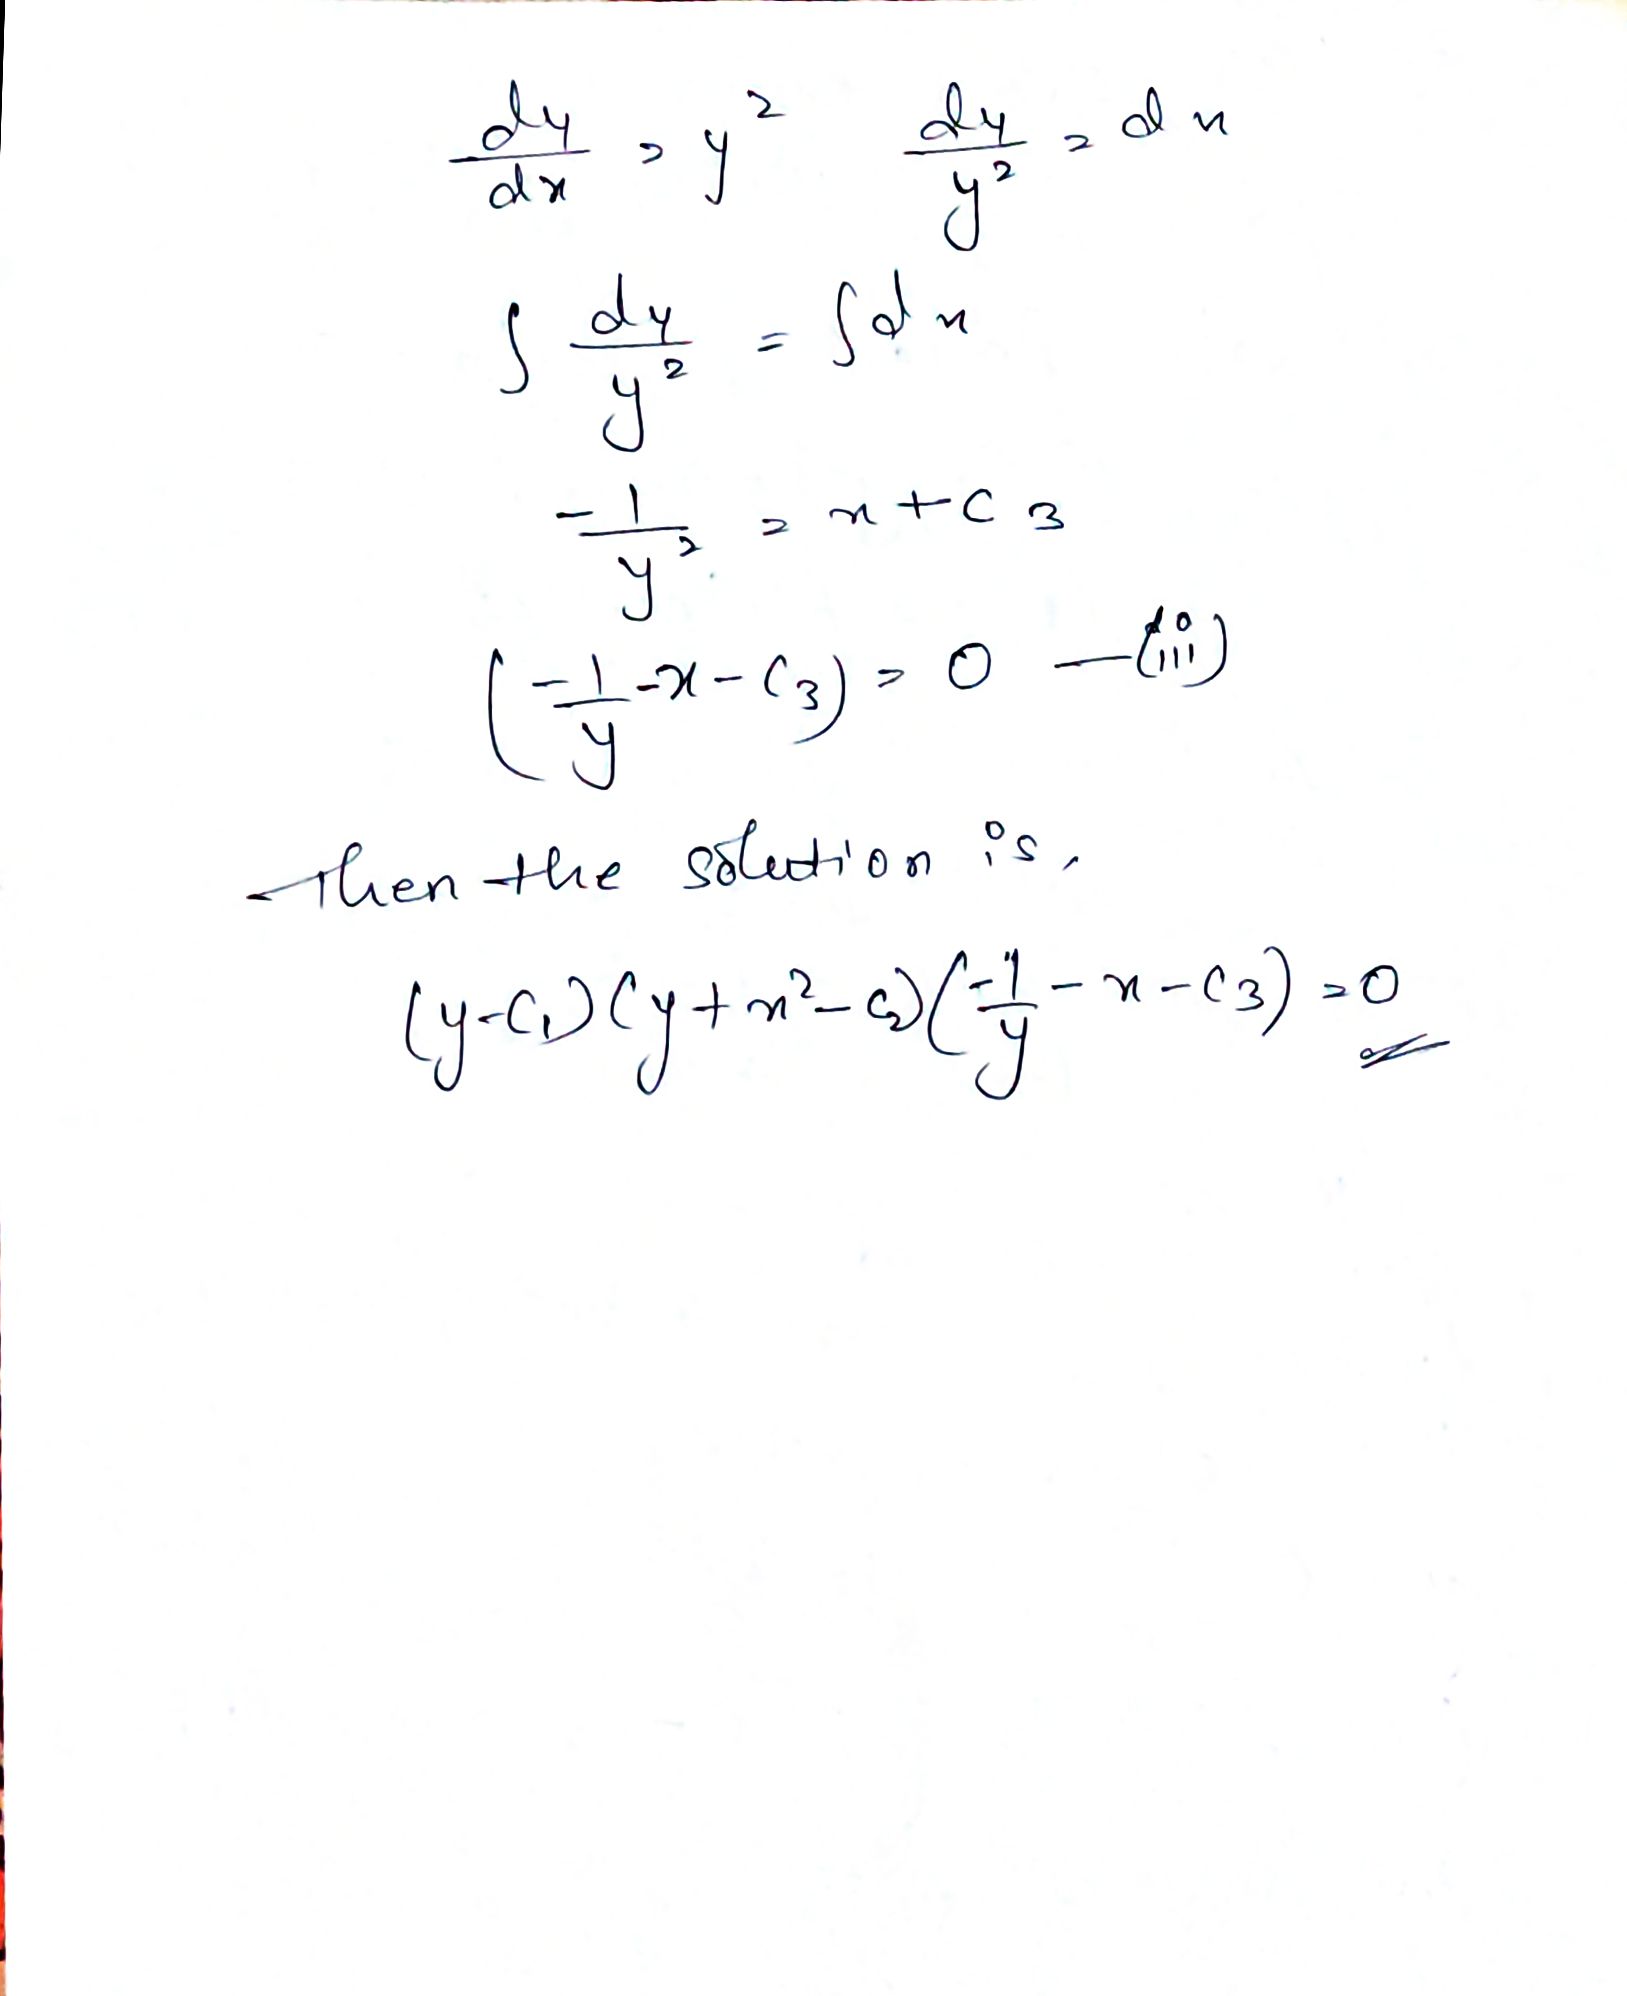 dy/dx = y² dy/y² = dx
∫ dy/y² = ∫dx
-1/y² = x + C3
(-1/y - x - C3) = 0 —(iii)
Then the solution is,
(y-C1)(y+x²-C2)(-1/y - x - C3) = 0